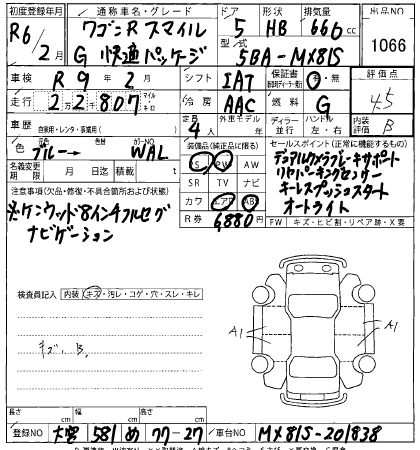 初度登録年月 通称車名・グレード ドア 形状 排気量 出品NO
R6/2月 ワゴンR スマイル 5 HB 666cc 1066
G 快適パッケージ 型式 5BA-MX81S
車検 R9年2月 シフト IAT 保証書 有・無 評価点
走行 22万807マイルキロ 冷房 AAC 燃料 G 4.5
車歴 自家用・レンタ・事業用( ) 定員 4人 外車モデル 年 ディーラー 並行 ハンドル 左・右 内装 B
色 ブルー→ 色替 カラーNO WAL
装備品(純正品に限る) セールスポイント(正常に機能するもの)
名義変更期限 月 日迄 積載 t
PS PW AW
SR TV ナビ
カワ エアB AB
R券 6880円
デュアルカメラブレーキサポート
リヤパーキングセンサー
キーレスプッシュスタート
オートライト
注意事項(欠品・修復・不具合箇所および状態)
※ケンウッド8インチフルセグ
ナビゲーション
FW キズ・ヒビ割・リペア跡・X要
検査員記入 内装 キズ・汚レ・コゲ・穴・スレ・キレ
キズ、B、
A1 A1
長さ cm 幅 cm 高さ cm
登録NO 大宮 581 め 77-27 車台NO MX81S-201838